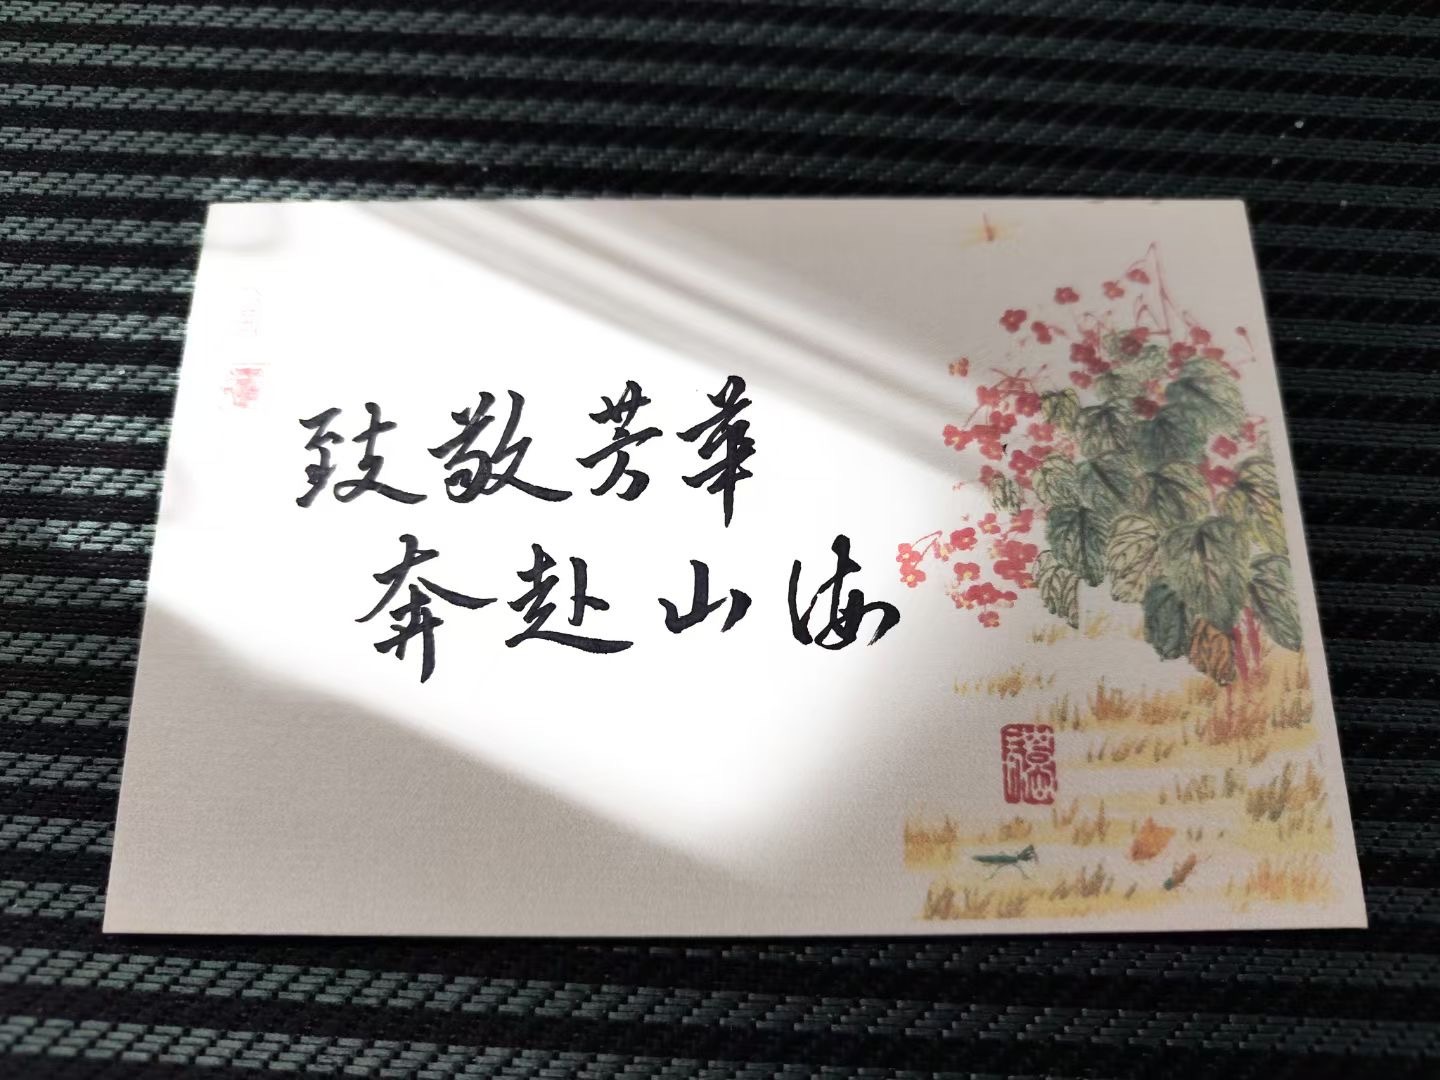 致敬芳華
奔赴山海